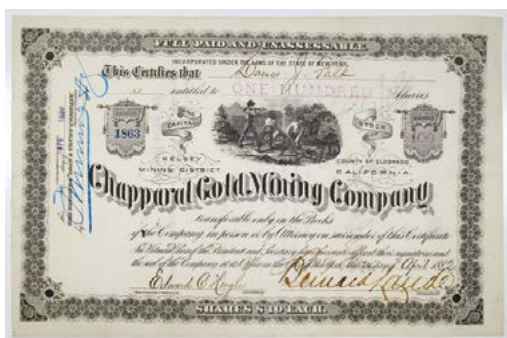 FULL PAID AND UNASSESSABLE.
INCORPORATED UNDER THE LAWS OF THE STATE OF NEW YORK.
This Certifies that
is entitled to ONE HUNDRED Shares
CAPITAL STOCK
1863 100
KELSEY COUNTY OF ELDORADO
MINING DISTRICT CALIFORNIA.
Chapparal Gold Mining Company
transferable only on the Books
of the Company in person or by Attorney on surrender of this Certificate
In Witness Whereof the President and Secretary have hereunto affixed their signatures and
the seal of the Company at its Office in the City of New York this day of April 1882
Edward C
Bernard
SHARES $10 EACH.